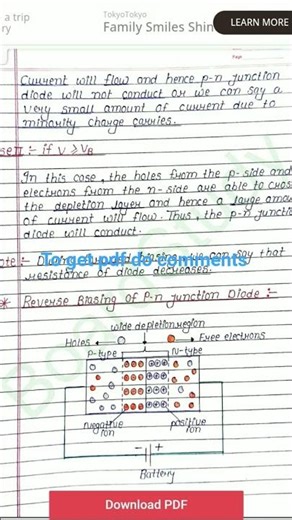 a trip
ry
TokyoTokyo
Family Smiles Shin
LEARN MORE
Page
Current will flow and hence p-n junction
diode will not conduct or we can say a
very small amount of current due to
minority charge carries.
se II :- if V ≥ VB
In this case, the holes from the p-side and
electrons from the n-side are able to cross
the depletion layer and hence a large amou
of current will flow. Thus, the p-n juncti
diode will conduct.
ote :- During forward biasing, we can say that
To get pdf do comments
resistance of diode decreases.
* Reverse Biasing of P-n junction Diode :-
wide depletion region
Holes
Free electrons
P-type
N-type
negative
ion
positive
ion
- +
Battery
Download PDF